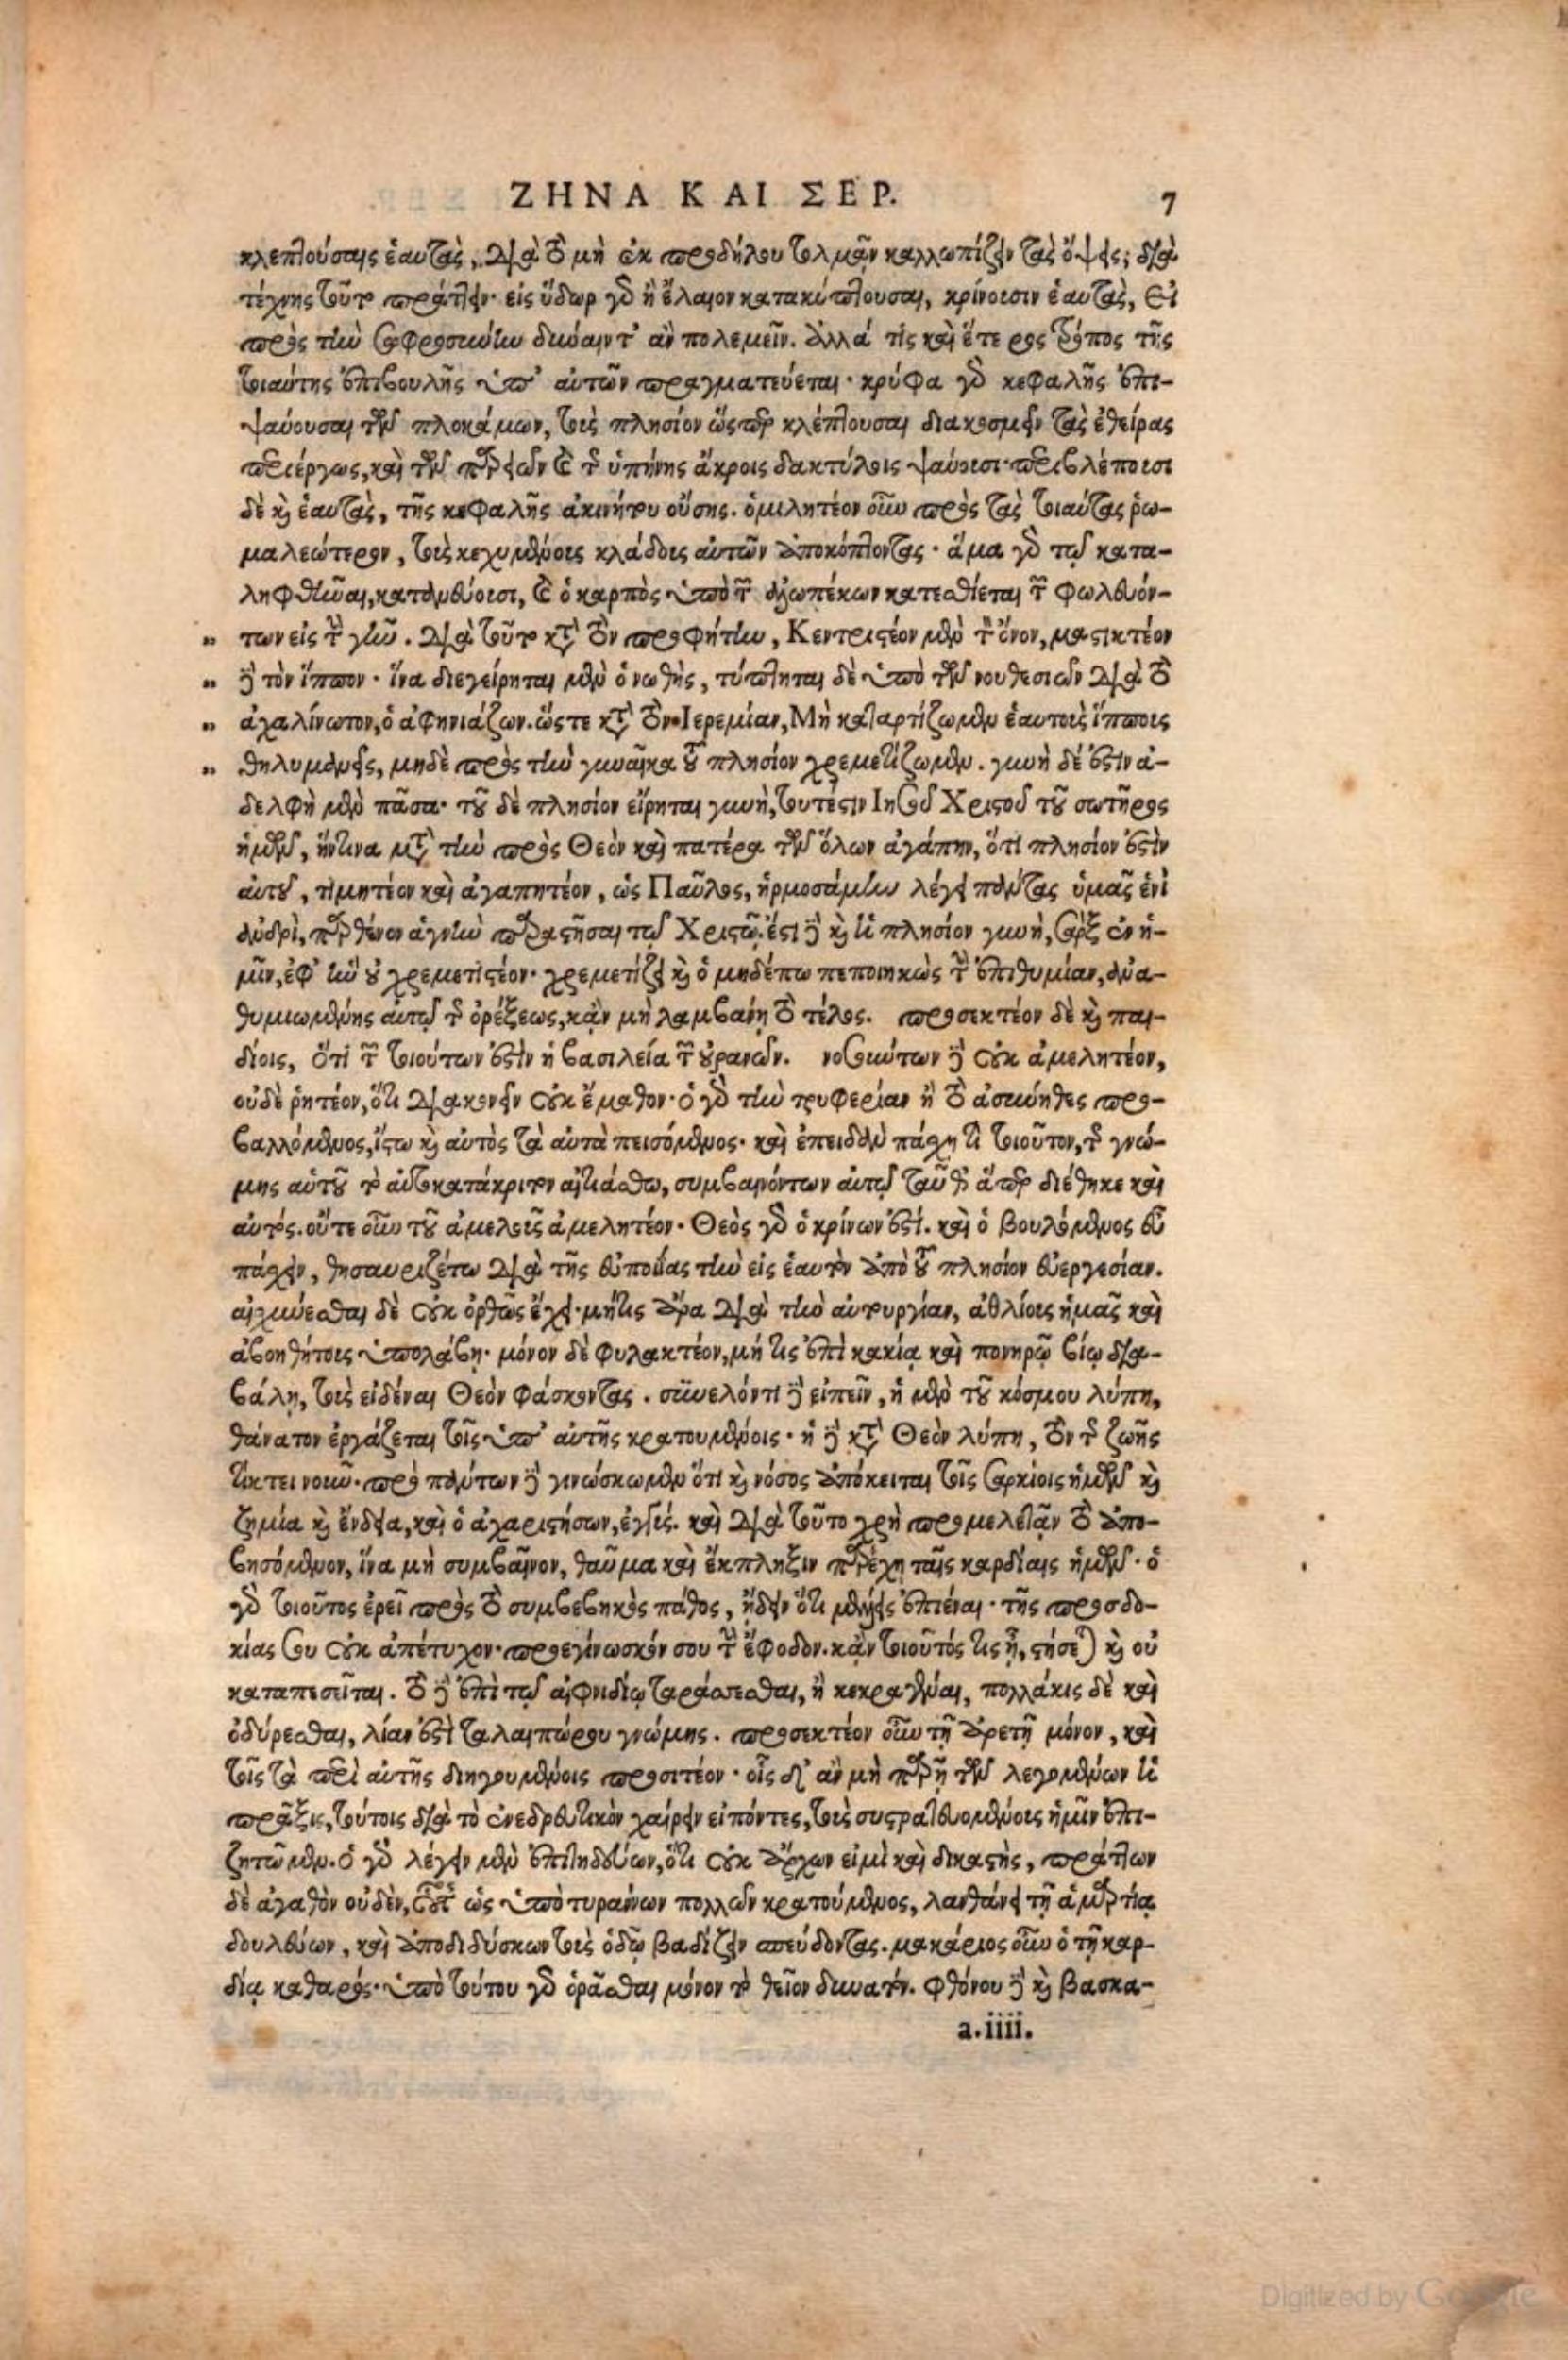 ΖΗΝΑ ΚΑΙ ΣΕΡ. 7
κλεπτούσαις ἑαυτὰς, διὰ τὸ μὴ ἐκ προδήλου τολμᾷν καλλωπίζειν τὰς ὄψεις; διὰ
τέχνης τοῦτο πράττειν· εἰς ὕδωρ γὰρ ἢ ἔλαιον κατακύπτουσαι, κρίνουσιν ἑαυτὰς, εἰ
πρὸς τὴν σωφροσύνην δύναιντ' ἂν πολεμεῖν. ἀλλά τις καὶ ἕτερος τρόπος τῆς
τοιαύτης ἐπιβουλῆς ὑπ' αὐτῶν πραγματεύεται· κρύφα γὰρ κεφαλῆς ἐπι-
ψαύουσαι τῶν πλοκάμων, τοὺς πλησίον ὥσπερ κλέπτουσαι διακοσμεῖν τὰς ἐθείρας
περιέργως, καὶ τῶν παρειῶν καὶ τῆς ὑπήνης ἄκροις δακτύλοις ψαύουσι· περιβλέπουσι
δὲ καὶ ἑαυτὰς, τῆς κεφαλῆς ἀκινήτου οὔσης. ὁμιλητέον οὖν πρὸς τὰς τοιαύτας ῥω-
μαλεώτερον, τοὺς κεχυμένους κλάδους αὐτῶν ἀποκόπτοντας· ἅμα γὰρ τῷ κατα-
ληφθῆναι, κατευνοῦσι, καὶ ὁ καρπὸς ὑπὸ τῶν ἀλωπέκων κατεσθίεται τῶν φωλευόν-
" των εἰς τὴν γῆν. διὰ τοῦτο κατὰ τὸν προφήτην, Κεντριστέον μὲν τὸν ὄνον, μαστικτέον
" δὲ τὸν ἵππον· ἵνα διεγείρηται μὲν ὁ νωθὴς, τύπτηται δὲ ὑπὸ τῶν νουθεσιῶν διὰ τὸ
" ἀχαλίνωτον, ὁ ἀφηνιάζων. ὥστε κατὰ τὸν Ἰερεμίαν, Μὴ καταρτίζωμεν ἑαυτοὺς ἵππους
" θηλυμανεῖς, μηδὲ πρὸς τὴν γυναῖκα τοῦ πλησίον χρεμετίζωμεν. γυνὴ δέ ἐστιν ἀ-
δελφὴ μὲν πᾶσα· τοῦ δὲ πλησίον εἴρηται γυνὴ, τουτέστιν Ἰησοῦ Χριστοῦ τοῦ σωτῆρος
ἡμῶν, ἥντινα μετὰ τὴν πρὸς Θεὸν καὶ πατέρα τῶν ὅλων ἀγάπην, ὅτι πλησίον ἐστὶν
αὐτοῦ, τιμητέον καὶ ἀγαπητέον, ὡς Παῦλος, ἡρμοσάμην λέγει πάντας ὑμᾶς ἑνὶ
ἀνδρὶ, παρθένον ἁγνὴν παραστῆσαι τῷ Χριστῷ. ἔστι δὲ καὶ ἡ πλησίον γυνὴ, σὰρξ ἐν ἡ-
μῖν, ἐφ' ἣν οὐ χρεμετιστέον· χρεμετίζει καὶ ὁ μηδέπω πεποιηκὼς τὴν ἐπιθυμίαν, ἀνα-
θυμιωμένης αὐτῷ τῆς ὀρέξεως, κἂν μὴ λαμβάνῃ τὸ τέλος. προσεκτέον δὲ καὶ παι-
δίοις, ὅτι τῶν τοιούτων ἐστὶν ἡ βασιλεία τῶν οὐρανῶν. νοσούντων δὲ οὐκ ἀμελητέον,
οὐδὲ ῥητέον, ὅτι διακονεῖν οὐκ ἔμαθον· ὁ γὰρ τὴν τρυφερίαν ἢ τὸ ἀσύνηθες προ-
βαλλόμενος, ἴστω καὶ αὐτὸς τὰ αὐτὰ πεισόμενος· καὶ ἐπειδὰν πάσχῃ τι τοιοῦτον, τῆς γνώ-
μης αὐτοῦ τὸ αὐτοκατάκριτον αἰτιάσθω, συμβαινόντων αὐτῷ ταῦθ' ἅπερ διέθηκε καὶ
αὐτός. οὔτε οὖν τοῦ ἀμελοῦς ἀμελητέον· Θεὸς γὰρ ὁ κρίνων ἐστί. καὶ ὁ βουλόμενος εὖ
πάσχειν, θησαυριζέτω διὰ τῆς εὐποιίας τὴν εἰς ἑαυτὸν ἀπὸ τοῦ πλησίον εὐεργεσίαν.
αἰσχύνεσθαι δὲ οὐκ ὀρθῶς ἔχει· μήτις ἄρα διὰ τὴν αὐτουργίαν, ἀθλίους ἡμᾶς καὶ
ἀβοηθήτους ὑπολάβῃ· μόνον δὲ φυλακτέον, μή τις ἐπὶ κακίᾳ καὶ πονηρῷ βίῳ δια-
βάλῃ, τοὺς εἰδέναι Θεὸν φάσκοντας. συνελόντι δὲ εἰπεῖν, ἡ μὲν τοῦ κόσμου λύπη,
θάνατον ἐργάζεται τοῖς ὑπ' αὐτῆς κρατουμένοις· ἡ δὲ κατὰ Θεὸν λύπη, τὸν τῆς ζωῆς
τίκτει νοῦν. πρὸ πάντων δὲ γινώσκωμεν ὅτι καὶ νόσος ἀπόκειται τοῖς σαρκίοις ἡμῶν καὶ
ζημία καὶ ἔνδεια, καὶ ὁ ἀχαριστήσων, ἐγγύς. καὶ διὰ τοῦτο χρὴ προμελετᾷν τὸ ἀπο-
βησόμενον, ἵνα μὴ συμβαῖνον, θαῦμα καὶ ἔκπληξιν παρέχῃ ταῖς καρδίαις ἡμῶν· ὁ
γὰρ τοιοῦτος ἐρεῖ πρὸς τὸ συμβεβηκὸς πάθος, ᾔδειν ὅτι μέλλεις ἐπιέναι· τῆς προσδο-
κίας σου οὐκ ἀπέτυχον· προεγίνωσκόν σου τὴν ἔφοδον. κἂν τοιοῦτός τις ᾖ, στήσεται καὶ οὐ
καταπεσεῖται. τὸ δὲ ἐπὶ τῷ αἰφνιδίῳ ταράσσεσθαι, ἢ κεκραγέναι, πολλάκις δὲ καὶ
ὀδύρεσθαι, λίαν ἐστὶ ταλαιπώρου γνώμης. προσεκτέον οὖν τῇ ἀρετῇ μόνον, καὶ
τοῖς τὰ περὶ αὐτῆς διηγουμένοις προσιτέον· οἷς δ' ἂν μὴ παρῇ τῶν λεγομένων ἡ
πρᾶξις, τούτοις διὰ τὸ ἐνεδρευτικὸν χαίρειν εἰπόντες, τοὺς συστρατευομένους ἡμῖν ἐπι-
ζητῶμεν. ὁ γὰρ λέγειν μὲν ἐπιτηδεύων, ὅτι οὐκ ἄρχων εἰμὶ καὶ δικαστὴς, πράττων
δὲ ἀγαθὸν οὐδὲν, οὗτος ὡς ὑπὸ τυράννων πολλῶν κρατούμενος, λανθάνει τῇ ἁμαρτίᾳ
δουλεύων, καὶ ἀποδιδύσκων τοὺς ὁδῷ βαδίζειν σπεύδοντας. μακάριος οὖν ὁ τῇ καρ-
δίᾳ καθαρός· ὑπὸ τούτου γὰρ ὁρᾶσθαι μόνον τὸ θεῖον δυνατόν. φθόνου δὲ καὶ βασκα-
a.iiii.
Digitized by Google